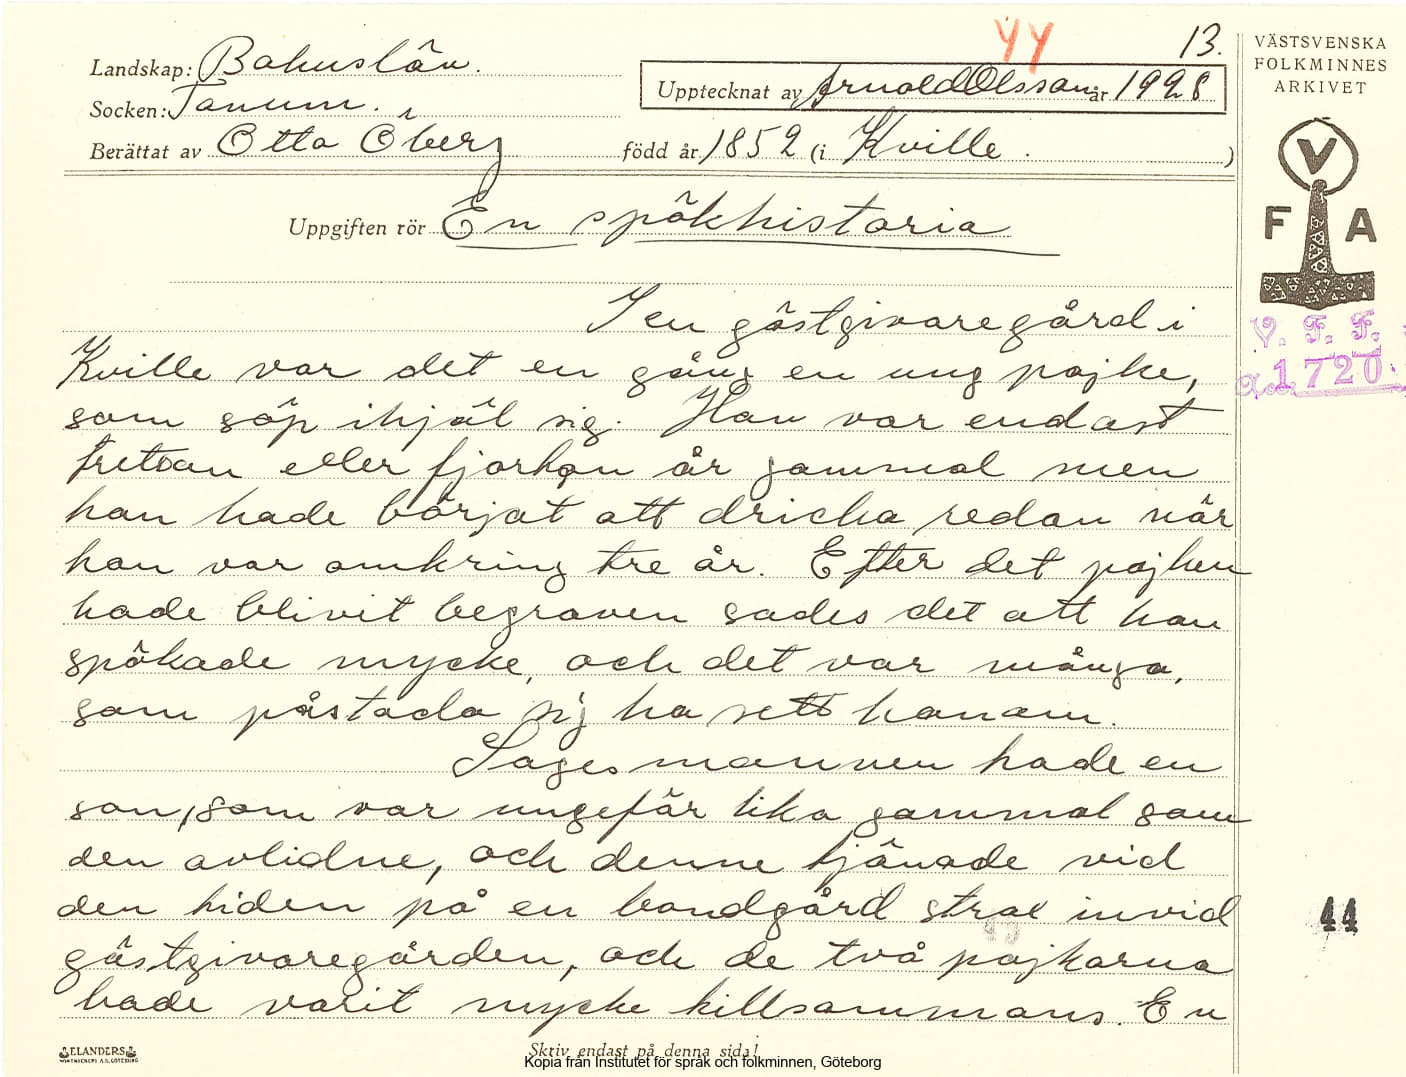 44
13.
Landskap: Bohuslän.
Upptecknat av Arnold Olsson år 1928
Socken: Tanum.
Berättat av Otto Öberg född år 1852 (i Kville. )
Uppgiften rör En spökhistoria
I en gästgivaregård i
Kville var det en gång en ung pojke,
som söp ihjäl sig. Han var endast
tretton eller fjorton år gammal men
han hade börjat att dricka redan när
han var omkring tre år. Efter det pojken
hade blivit begraven sades det att han
spökade mycke, och det var många,
som påstodo sig ha sett honom.
Sagesmannen hade en
son, som var ungefär lika gammal som
den avlidne, och denne tjänade vid
den tiden på en bondgård strax invid
gästgivaregården, och de två pojkarna
hade varit mycke tillsammans. En
Skriv endast på denna sida!
Kopia från Institutet för språk och folkminnen, Göteborg
ELANDERS
VÄSTSVENSKA
FOLKMINNES
ARKIVET
V
F A
V. F. F.
1720.
44